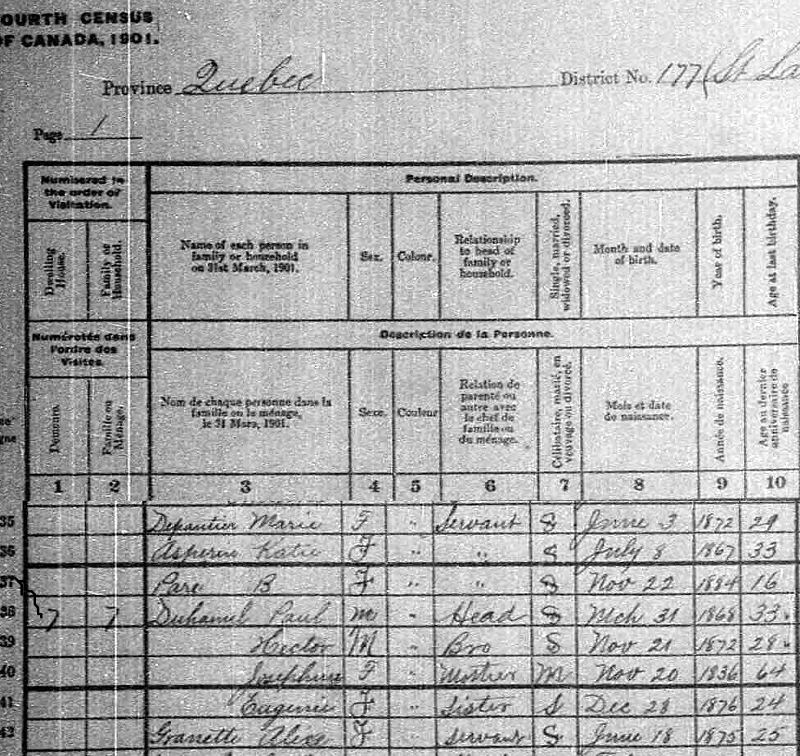 OURTH CENSUS
OF CANADA, 1901.
Province Quebec District No. 177 (St La
Page 1
Numbered in the order of Visitation.
Personal Description.
Dwelling House.
Family or Household.
Name of each person in family or household on 31st March, 1901.
Sex.
Colour.
Relationship to head of family or household.
Single, married, widowed or divorced.
Month and date of birth.
Year of birth.
Age at last birthday.
Numérotés dans l'ordre des Visites.
Description de la Personne.
Demeure.
Famille ou Ménage.
Nom de chaque personne dans la famille ou le ménage, le 31 Mars, 1901.
Sexe.
Couleur
Relation de parenté ou autre avec le chef de famille ou du ménage.
Célibataire, marié, en veuvage ou divorcé.
Mois et date de naissance.
Année de naissance.
Age au dernier anniversaire de naissance
1 2 3 4 5 6 7 8 9 10
35 Marie F " Servant S June 3 1872 29
36 Katie F " " S July 8 1867 33
37 Pare B F " " S Nov 22 1884 16
38 7 7 Duhamel Paul M " Head S Mch 31 1868 33
39 Hector M " Bro S Nov 21 1872 28
40 Josephine F " Mother M Nov 20 1836 64
41 Eugenie F " Sister S Dec 28 1876 24
42 Alice F " Servant S June 18 1875 25